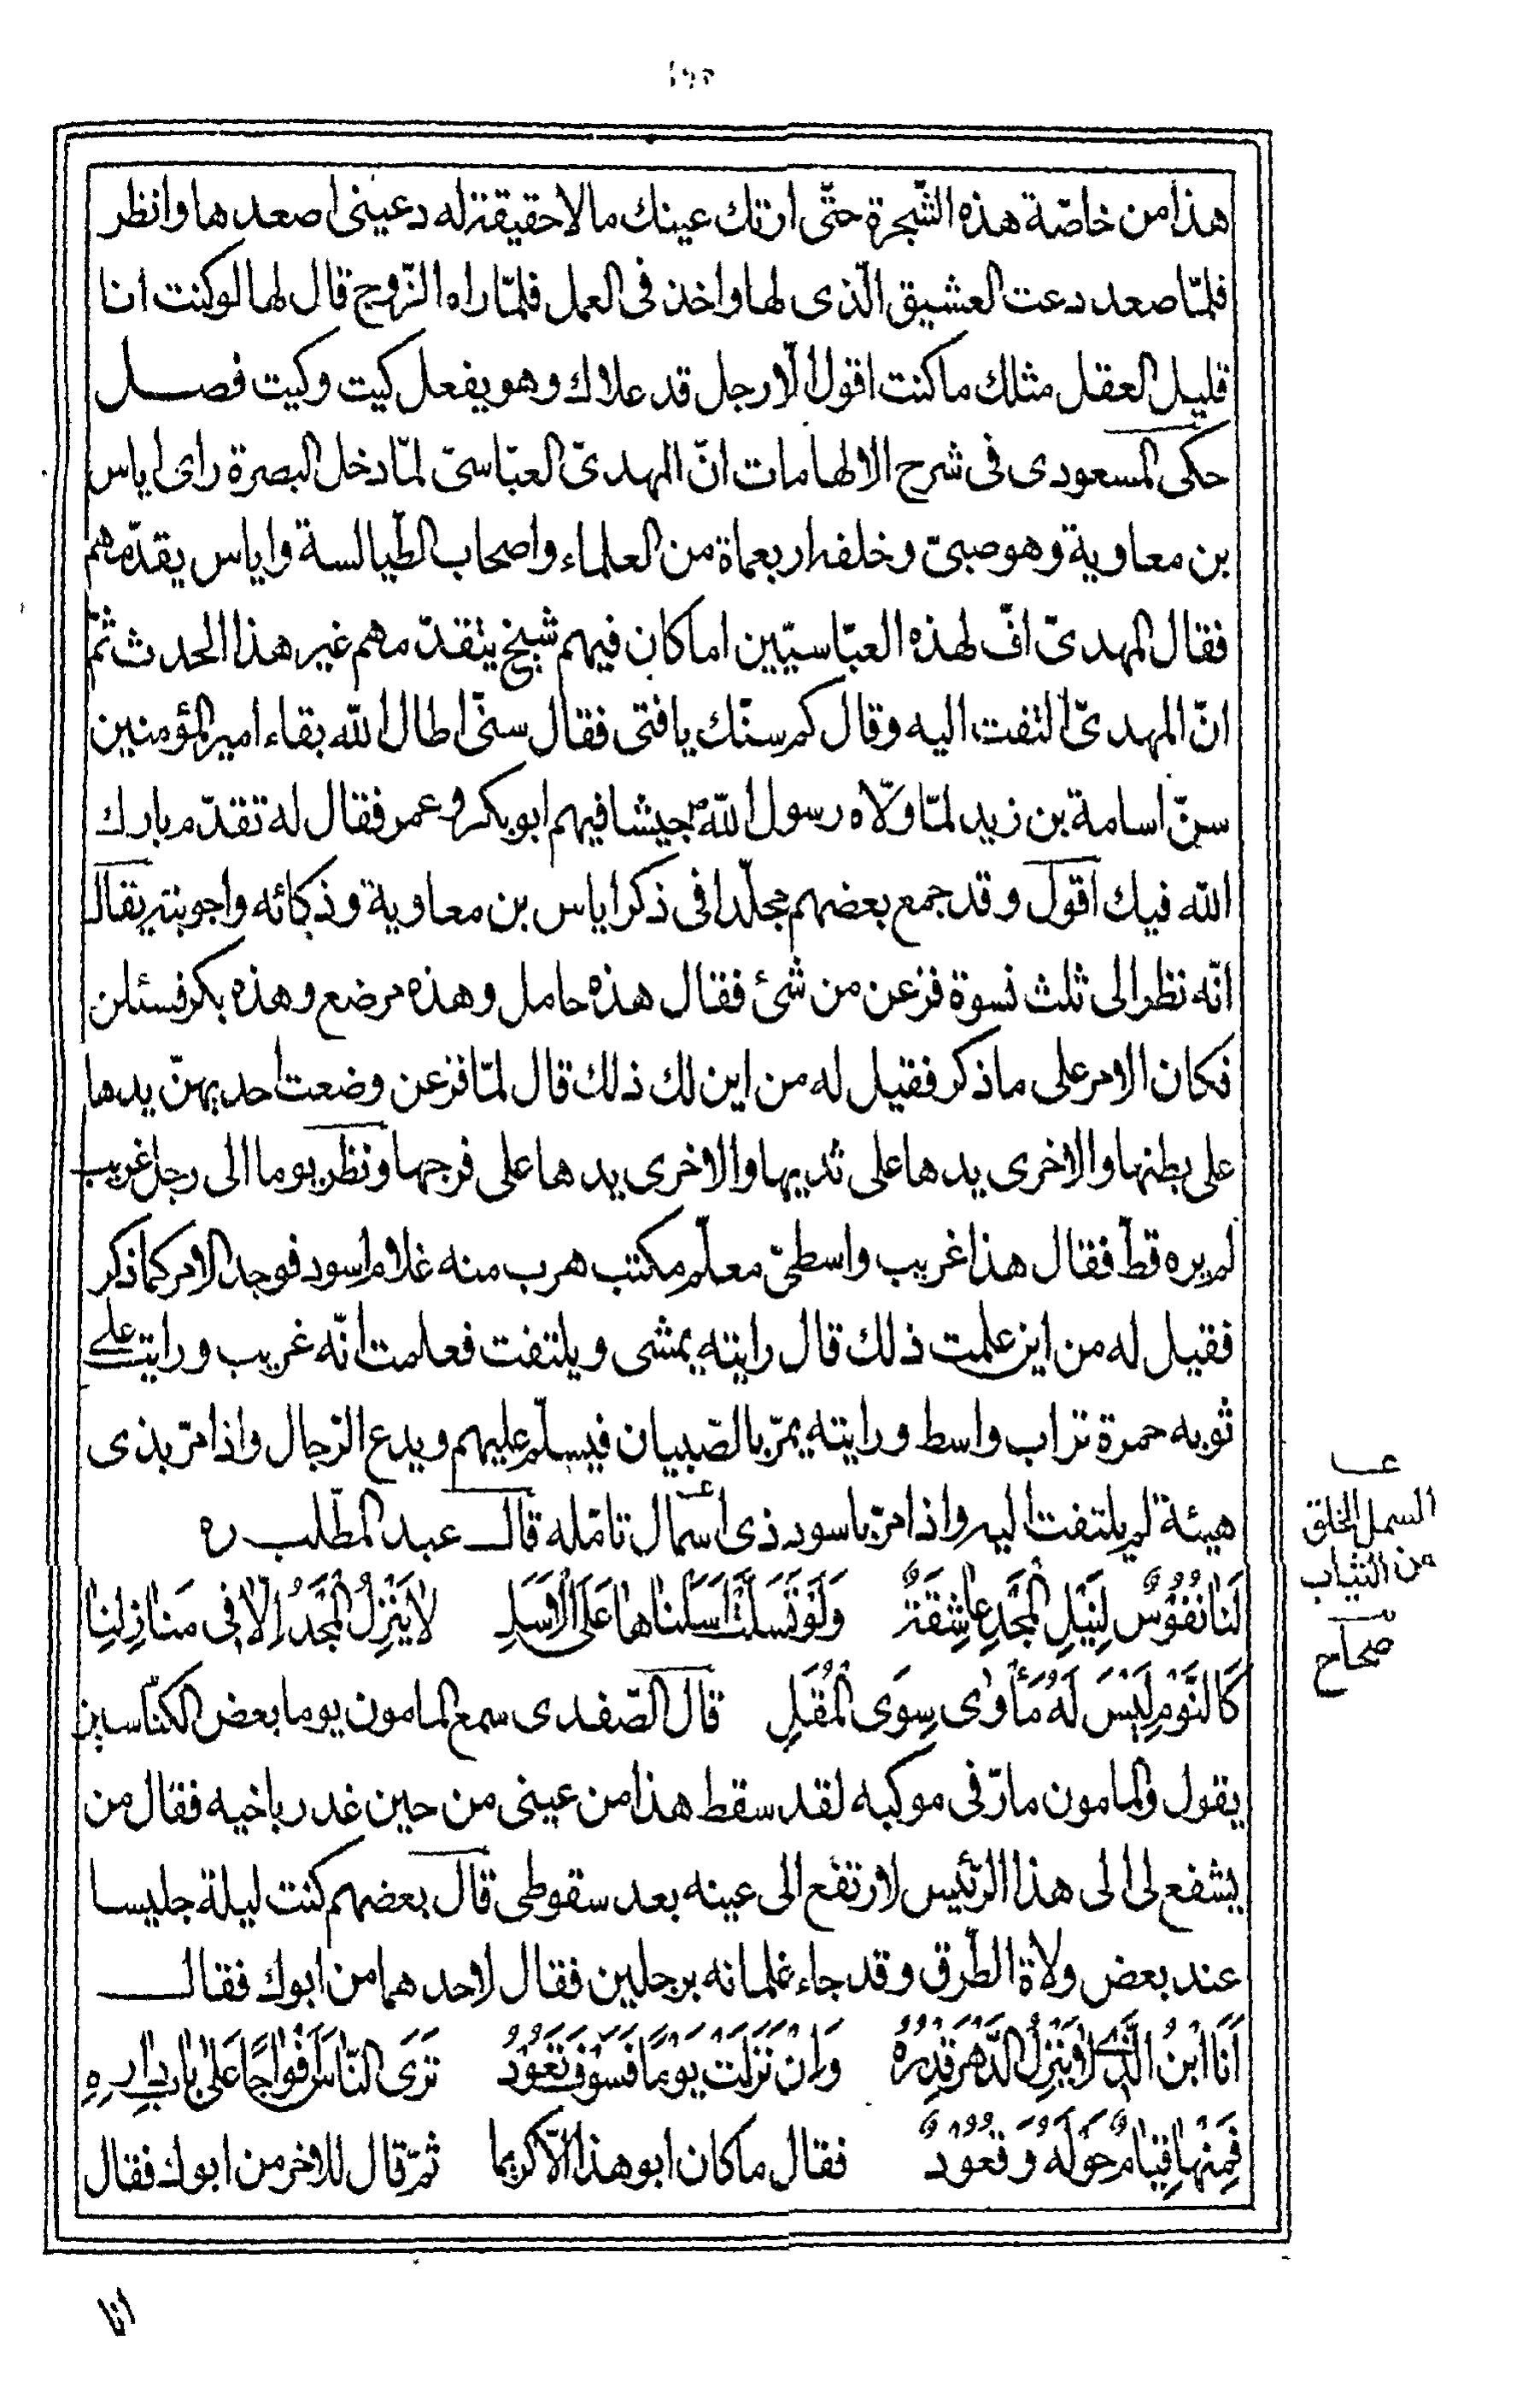 هذا من خاصّة هذه الشّجرة حتّى ارتك عينك ما لا حقيقة له دعينى اصعدها وانظر
فلمّا صعد دعت العشيق الّذى لها واخذ فى العمل فلمّا راه الزّوج قال لها لو كنت انا
قليل العقل مثلك ما كنت اقول الّا رجل قد علاك وهو يفعل كيت وكيت فصل
حكى المسعودى فى شرح الالهامات انّ المهدىّ العبّاسىّ لمّا دخل البصرة راى اياس
بن معاوية وهو صبىّ وخلفه اربعماة من العلماء واصحاب الطّيالسة واياس يقدّمهم
فقال المهدىّ افّ لهذه العبّاسيّين اما كان فيهم شيخ يتقدّمهم غير هذا الحدث ثمّ
انّ المهدىّ التفت اليه وقال كم سنّك يا فتى فقال سنّى اطال اللّه بقاء امير المؤمنين
سنّ اسامة بن زيد لمّا ولّاه رسول اللّه ص جيشا فيهم ابو بكر وعمر فقال له تقدّم بارك
اللّه فيك اقول وقد جمع بعضهم مجلّدا فى ذكر اياس بن معاوية وذكائه واجوبته يقال
انّه نظر الى ثلث نسوة فزعن من شئ فقال هذه حامل وهذه مرضع وهذه بكر فسئلن
فكان الامر على ما ذكر فقيل له من اين لك ذلك قال لمّا فزعن وضعت احديهنّ يدها
على بطنها والاخرى يدها على ثديها والاخرى يدها على فرجها ونظر يوما الى رجل غريب
لم يره قطّ فقال هذا غريب واسطىّ معلّم مكتب هرب منه غلام اسود فوجد الامر كما ذكر
فقيل له من اين علمت ذلك قال رايته يمشى ويلتفت فعلمت انّه غريب ورايت على
ثوبه حمرة تراب واسط ورايته يمرّ بالصّبيان فيسلّم عليهم ويدع الرّجال واذا مرّ بذى
هيئة لم يلتفت اليه واذا مرّ باسود ذى اسمال تامّله قال عبد المطّلب ره
لَنا نُفُوسٌ لِنَيْلِ الْمَجْدِ عاشِقَةٌ وَلَوْ تَسَلَّتْ اَسَلْناها عَلَى الْاَسَلِ لا يَنْزِلُ الْمَجْدُ اِلّا فى مَنازِلِنا
كَالنَّوْمِ لَيْسَ لَهُ مَأْوىٰ سِوَى الْمُقَلِ قال الصّفدى سمع المامون يوما بعض الكنّاسين
يقول والمامون مارّ فى موكبه لقد سقط هذا من عينى من حين غدر باخيه فقال من
يشفع لى الى هذا الرّئيس لارتفع الى عينه بعد سقوطى قال بعضهم كنت ليلة جليسا
عند بعض ولاة الطّرق وقد جاء غلمانه برجلين فقال لاحدهما من ابوك فقال
اَنَا ابْنُ الَّذى لا يَنْزِلُ الدَّهْرَ قِدْرُهُ وَاِنْ نَزَلَتْ يَوْمًا فَسَوْفَ تَعُوْدُ تَرَى النّاسَ اَفْواجًا عَلى بابِ دارِهِ
فَمِنْها قِيامٌ حَوْلَهُ وَقُعُوْدٌ فقال ما كان ابو هذا الّا كريما ثمّ قال للاخر من ابوك فقال
انا
السمل الخلق
من الثياب
صحاح